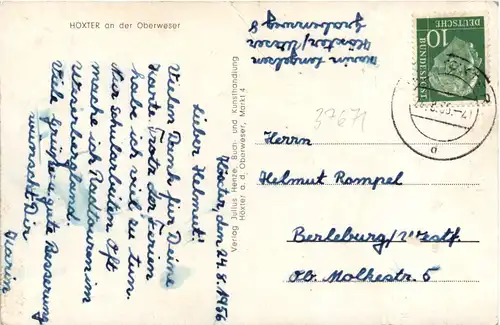 HÖXTER an der Oberweser
Höxter, den 24.8.1956
Lieber Helmut!
Vielen Dank für Deine
Karte. Trotz der Ferien
habe ich viel zu tun.
Nur Schularbeiten. Oft
mache ich Radtouren im
Weserbergland.
Viele Grüße u. gute Besserung
wünscht Dir
Karin
Verlag Julius Henze, Buch- und Kunsthandlung
Höxter a. d. Oberweser, Markt 4
Karin
Höxter/Weser
Grabenweg 8
10
DEUTSCHE
BUNDESPOST
37671
Herrn
Helmut Rompel
Berleburg/Westf.
Ob. Molkestr. 5